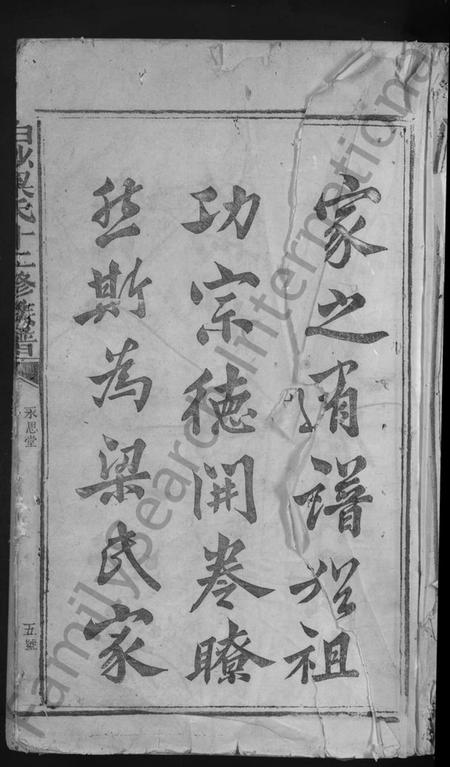 家之有譜從祖
功宗徳開卷瞭
然斯為梁氏家
氏十二修族譜
永思堂
五號
FamilySearch International